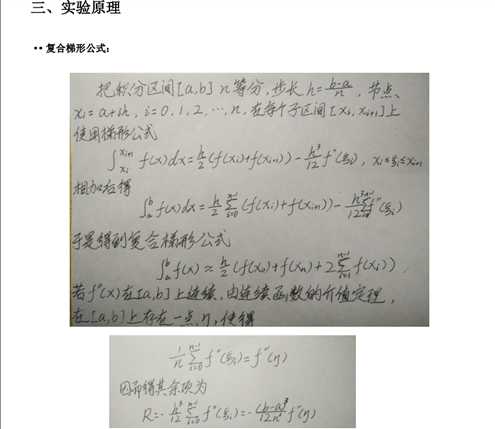 三、实验原理
•• 复合梯形公式：
把积分区间[a,b] n等分，步长 h=\frac{b-a}{n}，节点
x_i=a+ih，i=0,1,2,…,n，在每个子区间[x_i,x_{i+1}]上
使用梯形公式
∫_{x_i}^{x_{i+1}} f(x)dx=\frac{h}{2}(f(x_i)+f(x_{i+1}))-\frac{h^3}{12}f''(ξ_i)，x_i≤ξ_i≤x_{i+1}
相加后得
∫_a^b f(x)dx=\frac{h}{2}\sum_{i=0}^{n-1}(f(x_i)+f(x_{i+1}))-\frac{h^3}{12}\sum_{i=0}^{n-1}f''(ξ_i)
于是得到复合梯形公式
∫_a^b f(x)≈\frac{h}{2}(f(x_0)+f(x_n)+2\sum_{i=1}^{n-1}f(x_i))
若f''(x)在[a,b]上连续，由连续函数的介值定理，
在[a,b]上存在一点η，使得
\frac{1}{n}\sum_{i=0}^{n-1}f''(ξ_i)=f''(η)
因而得其余项为
R=-\frac{h^3}{12}\sum_{i=0}^{n-1}f''(ξ_i)=-\frac{(b-a)^3}{12n^2}f''(η)